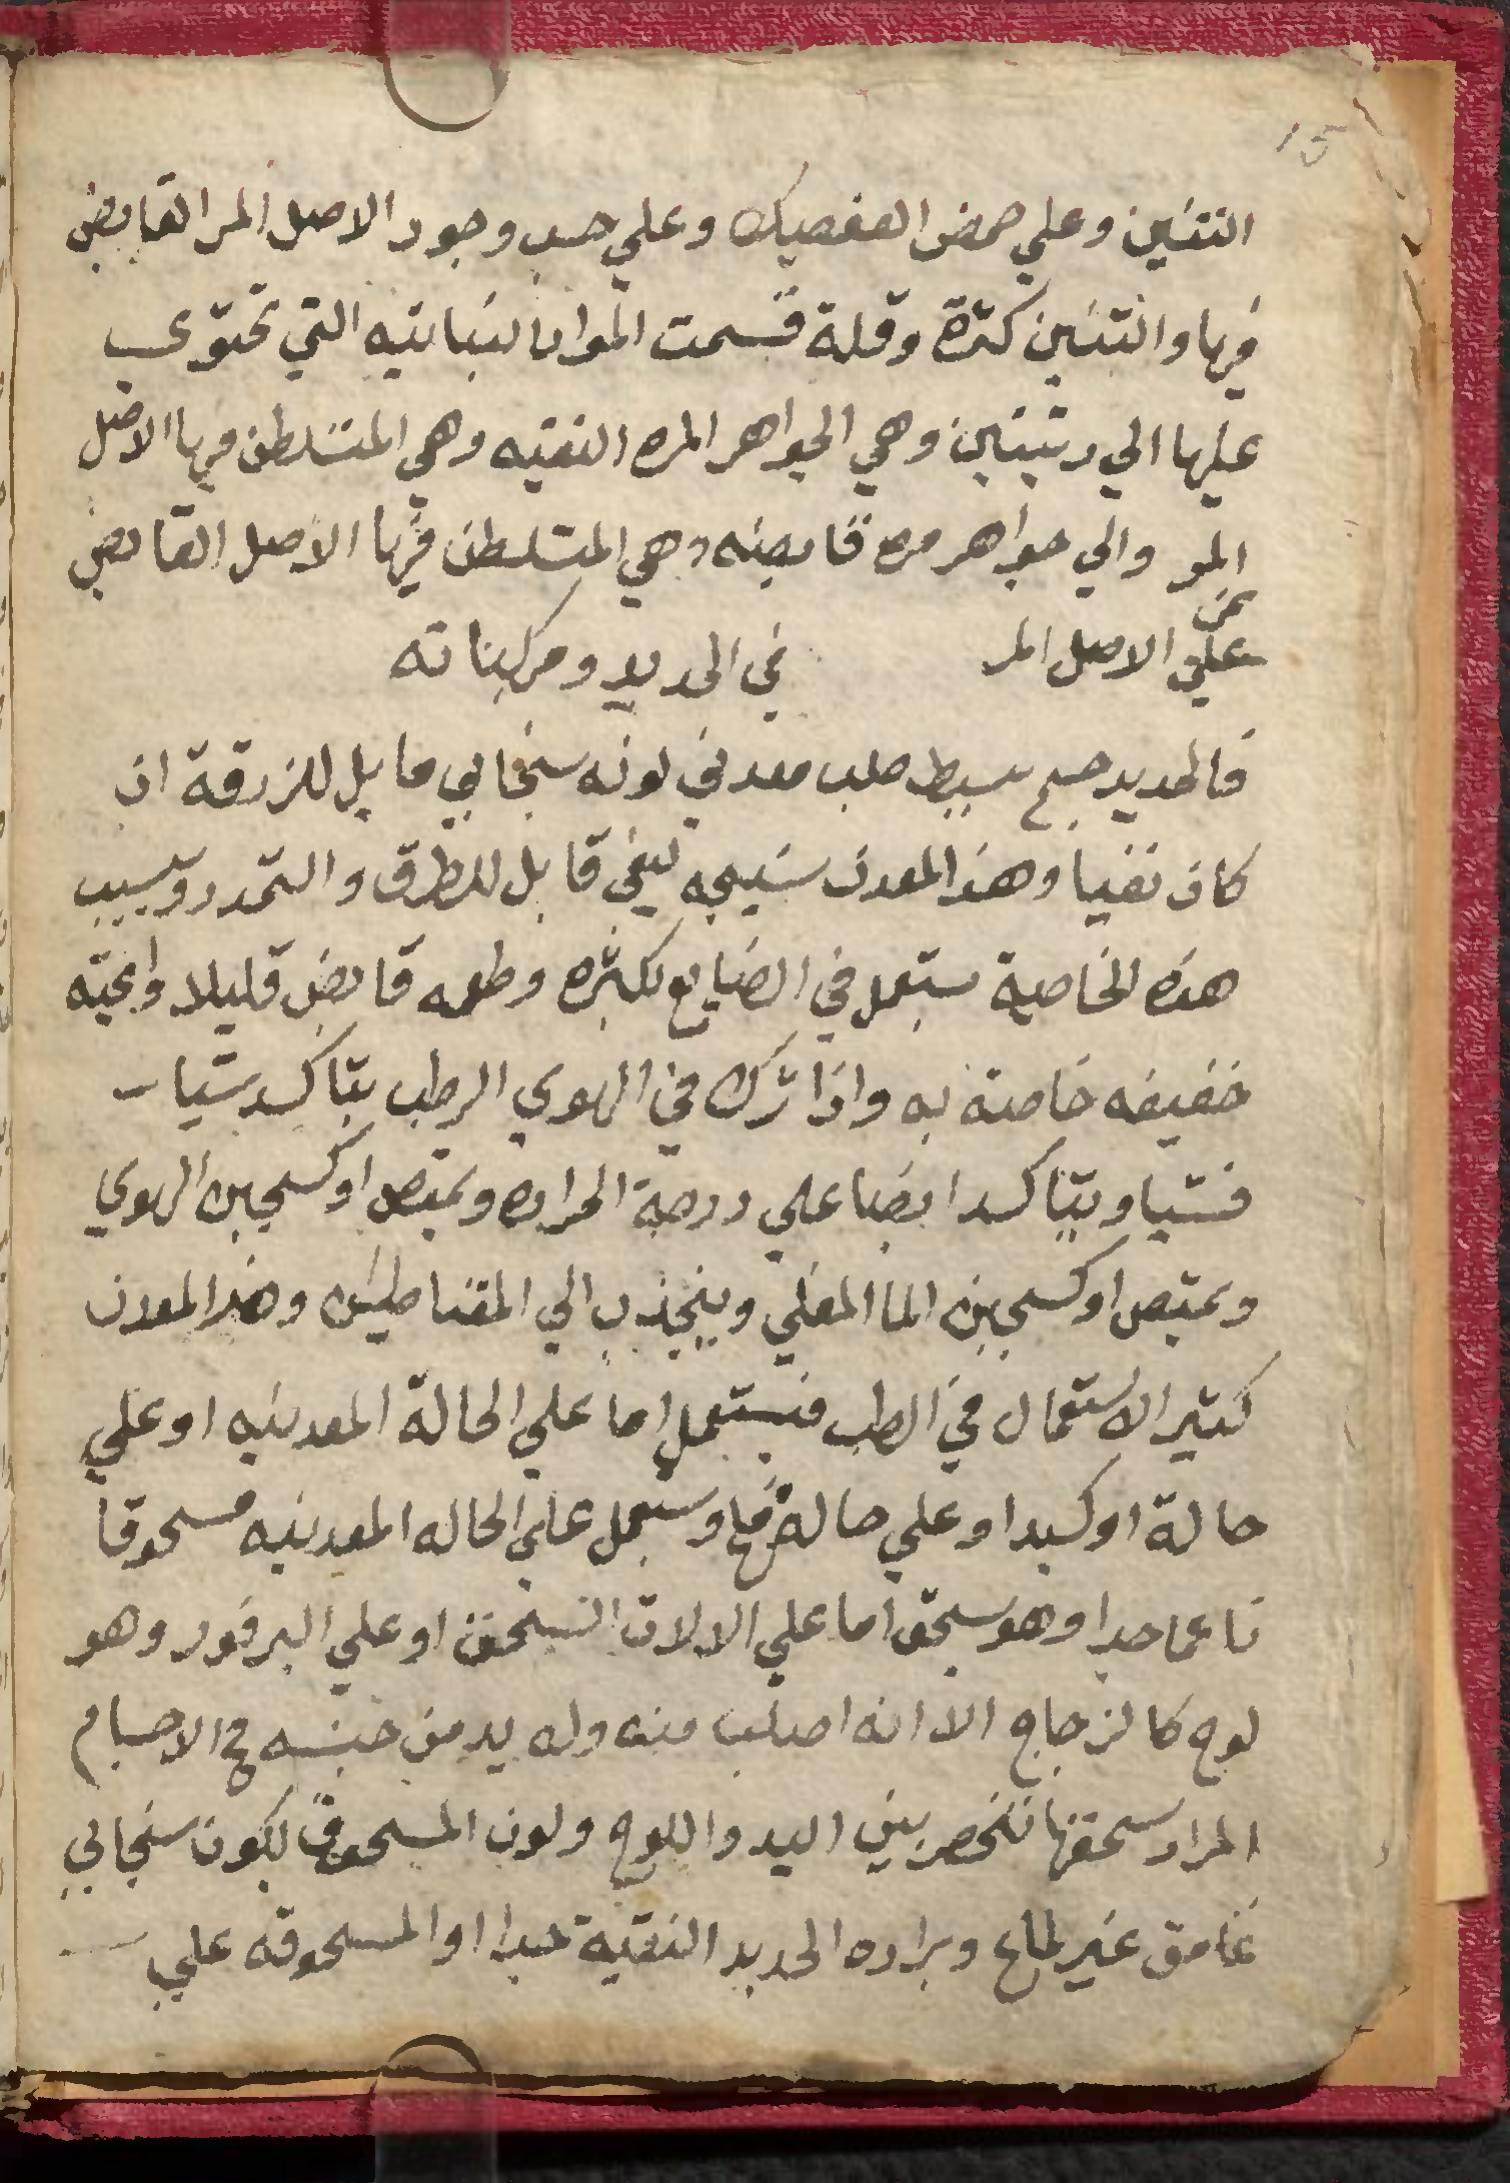 15
التنين وعلي حمض العفصيك وعلي حسب وجود الاصل المر القابض
فيها والتنين كثرة وقلة قسمت المواد النباتيه التي تحتوي
عليها الي رتبتين وهي الجواهر المره النقيه وهي المتسلطن فيها الاصل
المر والي جواهر مره قابضه وهي المتسلطن فيها الاصل القابض
عن
علي الاصل المر في الحديد ومركباته
فالحديد جسم بسيط صلب معدني لونه سنجابي مايل للزرقة ان
كان نقيا وهذا المعدن نسيجه ليفي قابل للطرق والتمدد وبسبب
هذه الخاصية يستعمل في الصنايع بكثره وطعمه قابض قليلا ورايحته
خفيفه خاصة به واذا ترك في الهوي الرطب يتاكسد شيا
فشيا ويتاكسد ايضا علي درجة الحراره ويمتص اوكسجين الهوي
ويمتص اوكسجين الما المغلي وينجذب الي المقناطيس وهذا المعدن
كثير الاستعمال في الطب فيستعمل اما علي الحالة المعدنيه او علي
حالة اوكسيد او علي حالة ملح ويستعمل علي الحاله المعدنيه مسحوقا
ناعما جدا وهو يسحق اما علي الالات السحق او علي البرفور وهو
لوح كالزجاج الا انه اصلب منه وله يد من جنسه والاجسام
المراد سحقها تنحصر بين اليد واللوح ولون المسحوق يكون سنجابي
غامق غير لماع وبراده الحديد النقية جدا او المسحوقه علي